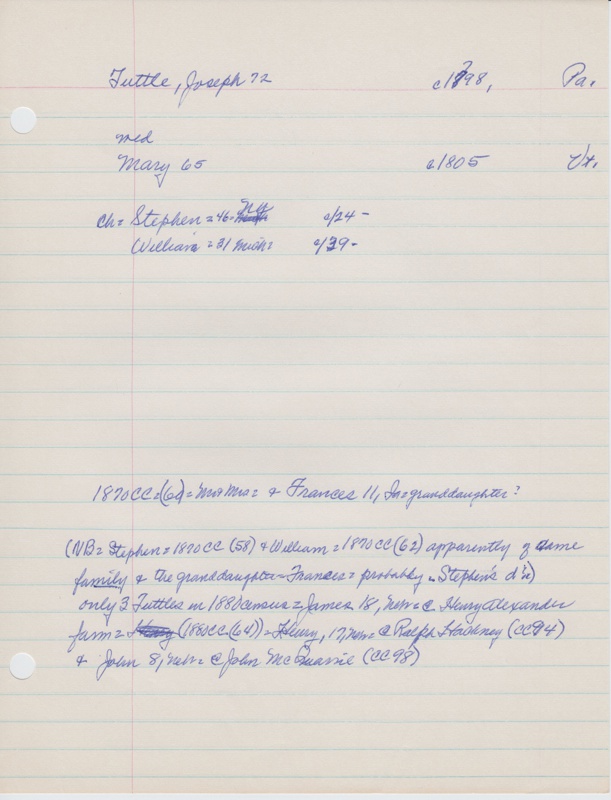 Tuttle, Joseph 72 c1798, Pa.
md
Mary 65 c1805 Vt.
Ch= Stephen = 46 = NY c/24 -
William = 31 Mich= c/39 -
1870CC=(61)= Mr & Mrs= & Frances 11, In=granddaughter?
(NB= Stephen=1870CC (58) & William=1870CC(62) apparently of same
family & the granddaughter=Frances= probably Stephen's d')
only 3 Tuttles in 1880census=James 18, = c Henry Alexander
farm= (1880CC(64))=Henry, 17, = c Ralph Hackney (CC94)
& John 8, = c John McQuarrie (CC98)